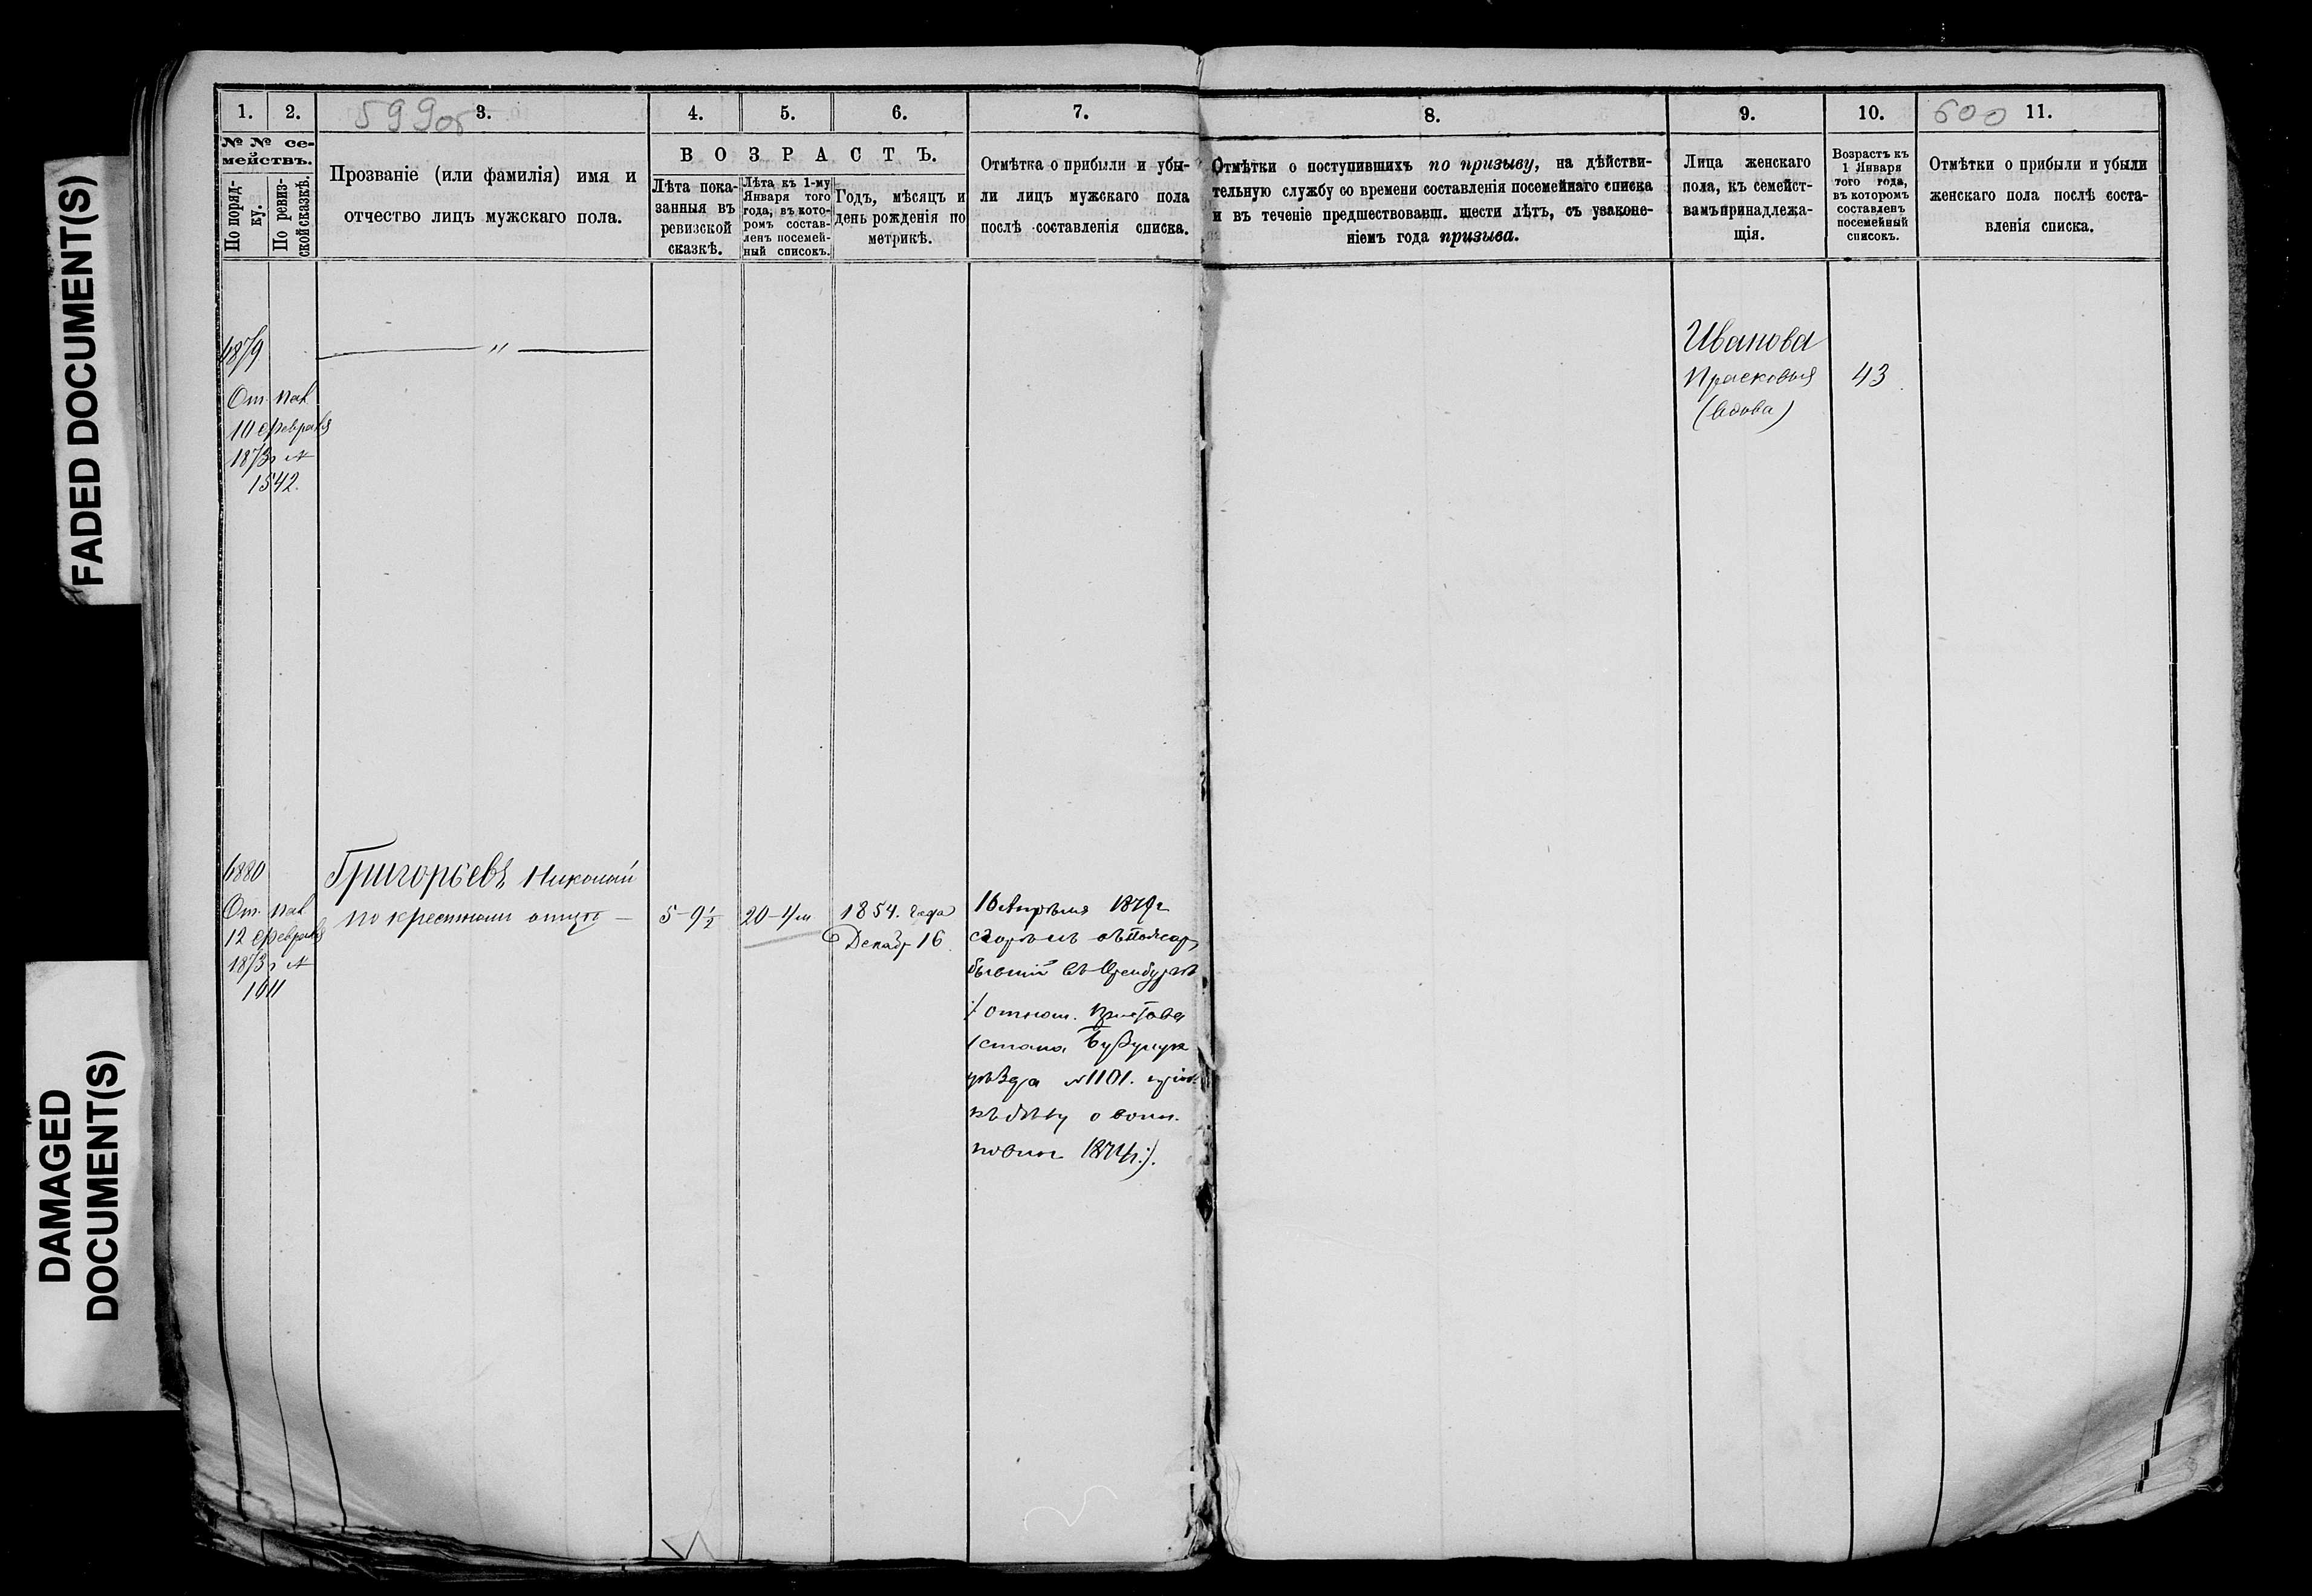 FADED DOCUMENT(S)
DAMAGED
DOCUMENT(S)
599об
600
1.
2.
3.
4.
5.
6.
7.
8.
9.
10.
11.
№ № се-
мействъ.
По поряд-
ку.
По ревиз-
ской сказкѣ.
Прозваніе (или фамилія) имя и
отчество лицъ мужскаго пола.
ВОЗРАСТЪ.
Лѣта пока-
занныя въ
ревизской
сказкѣ.
Лѣта къ 1-му
Января того
года, въ кото-
ромъ состав-
ленъ посемей-
ный списокъ.
Годъ, мѣсяцъ и
день рожденія по
метрикѣ.
Отмѣтка о прибыли и убы-
ли лицъ мужскаго пола
послѣ составленія списка.
Отмѣтки о поступившихъ по призыву, на дѣйстви-
тельную службу со времени составленія посемейнаго списка
и въ теченіе предшествовавш. шести лѣтъ, съ узаконе-
ніемъ года призыва.
Лица женскаго
пола, къ семейст-
вамъ принадлежа-
щія.
Возрастъ къ
1 Января
того года,
въ которомъ
составленъ
посемейный
списокъ.
Отмѣтки о прибыли и убыли
женскаго пола послѣ соста-
вленія списка.
4879
От. пал
10 февраля
1873 г №
1542.
"
Иванова
Прасковья
(вдова)
43
4880
От. пал
12 февраля
1873 г №
1911
Григорьевъ Николай
по крестному отцу
5-9½
20-4/м
1854. года
Декабр 16
16 Апрѣля 1879 г
сгорѣлъ въ пожар
бывшій въ Оренбургѣ
/: отнош. Пристава
1 стана Бузулук
уѣзда №1101.
къ дѣлу о воин.
повин 1874 г :/.